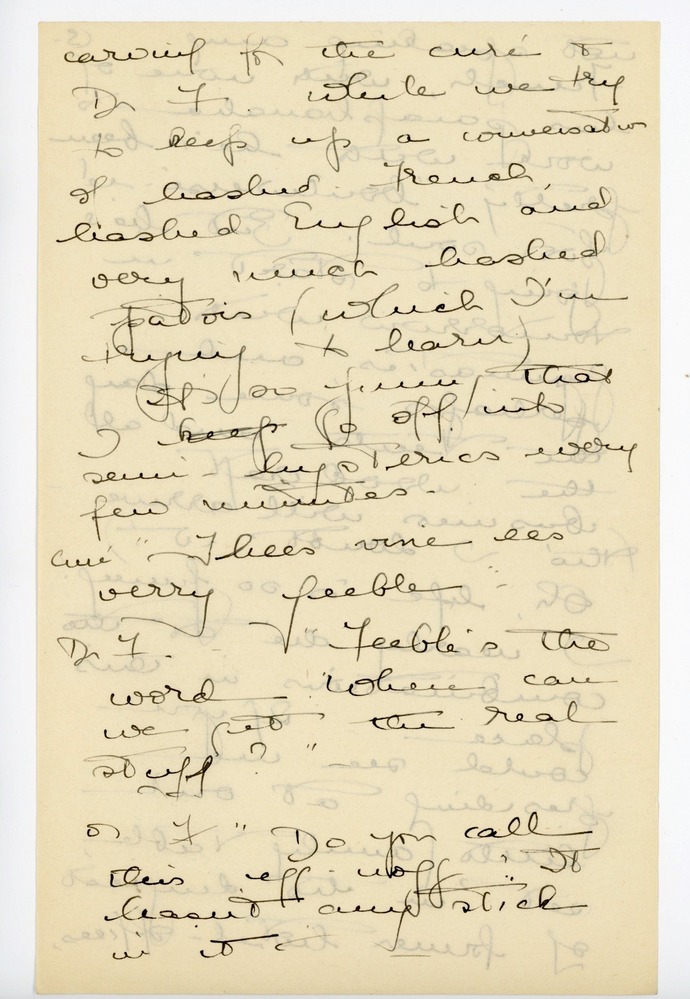 carving for the curé to
Dr F. while we try
to keep up a conversation
of hashed French,
hashed English and
very much hashed
patois (which I'm
trying to learn)
It's so funny that
I keep go off into
semi-hysterics every
few minutes.
curé "Thees vine ees
verry feeble"
Dr F. - "Feeble's the
word. Where can
we get the real
stuff?"
or F "Do you call
this egg nogg? It
hasn't any stick
in it